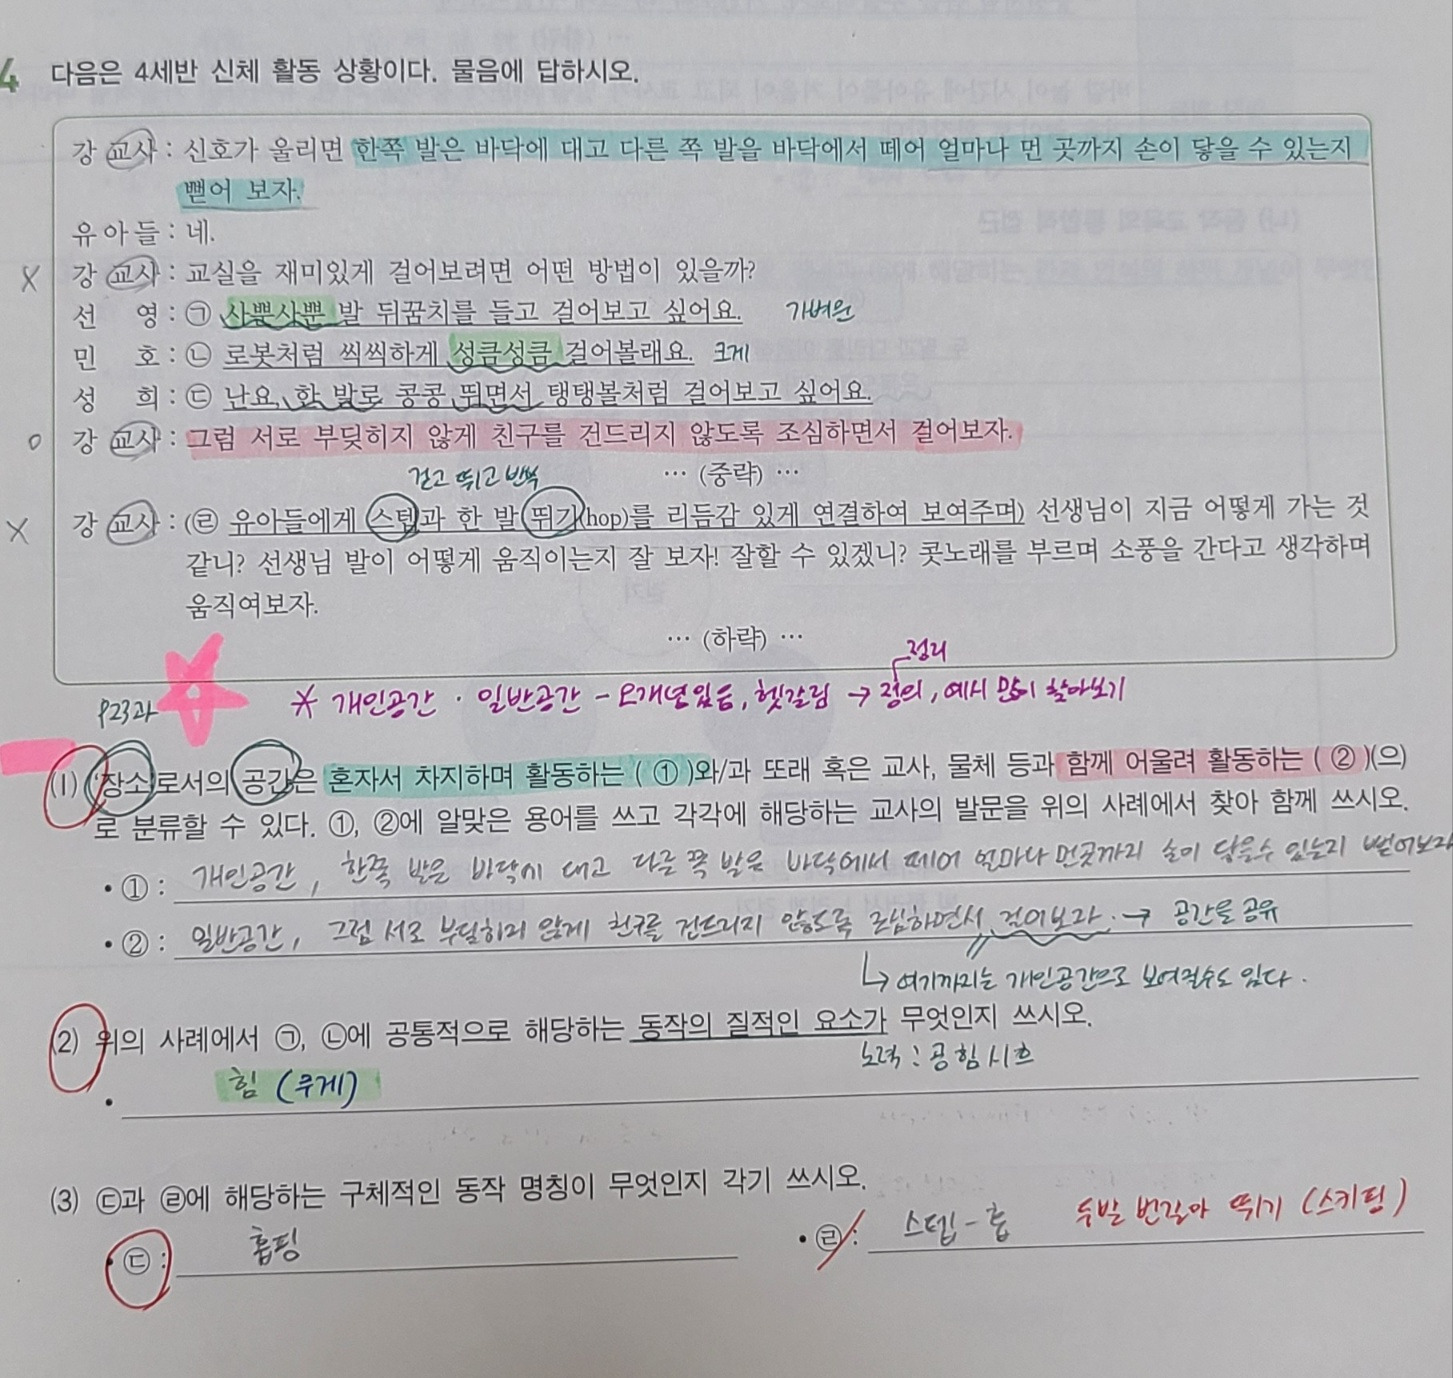 4 다음은 4세반 신체 활동 상황이다. 물음에 답하시오.
강 교사 : 신호가 울리면 한쪽 발은 바닥에 대고 다른 쪽 발을 바닥에서 떼어 얼마나 먼 곳까지 손이 닿을 수 있는지
뻗어 보자.
유아들 : 네.
X 강 교사 : 교실을 재미있게 걸어보려면 어떤 방법이 있을까?
선 영 : ㉠ 사뿐사뿐 발 뒤꿈치를 들고 걸어보고 싶어요. 가벼운
민 호 : ㉡ 로봇처럼 씩씩하게 성큼성큼 걸어볼래요. 크게
성 희 : ㉢ 난요, 한 발로 콩콩 뛰면서 탱탱볼처럼 걸어보고 싶어요.
o 강 교사 : 그럼 서로 부딪히지 않게 친구를 건드리지 않도록 조심하면서 걸어보자.
걷고 뛰고 반복 … (중략) …
X 강 교사 : (㉣ 유아들에게 스텝과 한 발 뛰기(hop)를 리듬감 있게 연결하여 보여주며) 선생님이 지금 어떻게 가는 것
같니? 선생님 발이 어떻게 움직이는지 잘 보자! 잘할 수 있겠니? 콧노래를 부르며 소풍을 간다고 생각하며
움직여보자.
… (하략) …
정리
P23과 * 개인공간 · 일반공간 - 오개념있음, 헷갈림 → 정의, 예시 많이 찾아보기
(1) '장소'로서의 공간은 혼자서 차지하며 활동하는 ( ① )와/과 또래 혹은 교사, 물체 등과 함께 어울려 활동하는 ( ② )(으)
로 분류할 수 있다. ①, ②에 알맞은 용어를 쓰고 각각에 해당하는 교사의 발문을 위의 사례에서 찾아 함께 쓰시오.
• ① : 개인공간, 한쪽 발은 바닥에 대고 다른 쪽 발은 바닥에서 떼어 얼마나 먼곳까지 손이 닿을수 있는지 뻗어보자
• ② : 일반공간, 그럼 서로 부딪히지 않게 친구를 건드리지 않도록 조심하면서 걸어보자. → 공간을 공유
↳ 여기까지는 개인공간으로 보여질수도 있다.
(2) 위의 사례에서 ㉠, ㉡에 공통적으로 해당하는 동작의 질적인 요소가 무엇인지 쓰시오.
노력 : 공힘시흐
• 힘 (무게)
(3) ㉢과 ㉣에 해당하는 구체적인 동작 명칭이 무엇인지 각기 쓰시오.
• ㉢ : 홉핑 • ㉣ : 스텝-홉 두발 번갈아 뛰기 (스키핑)